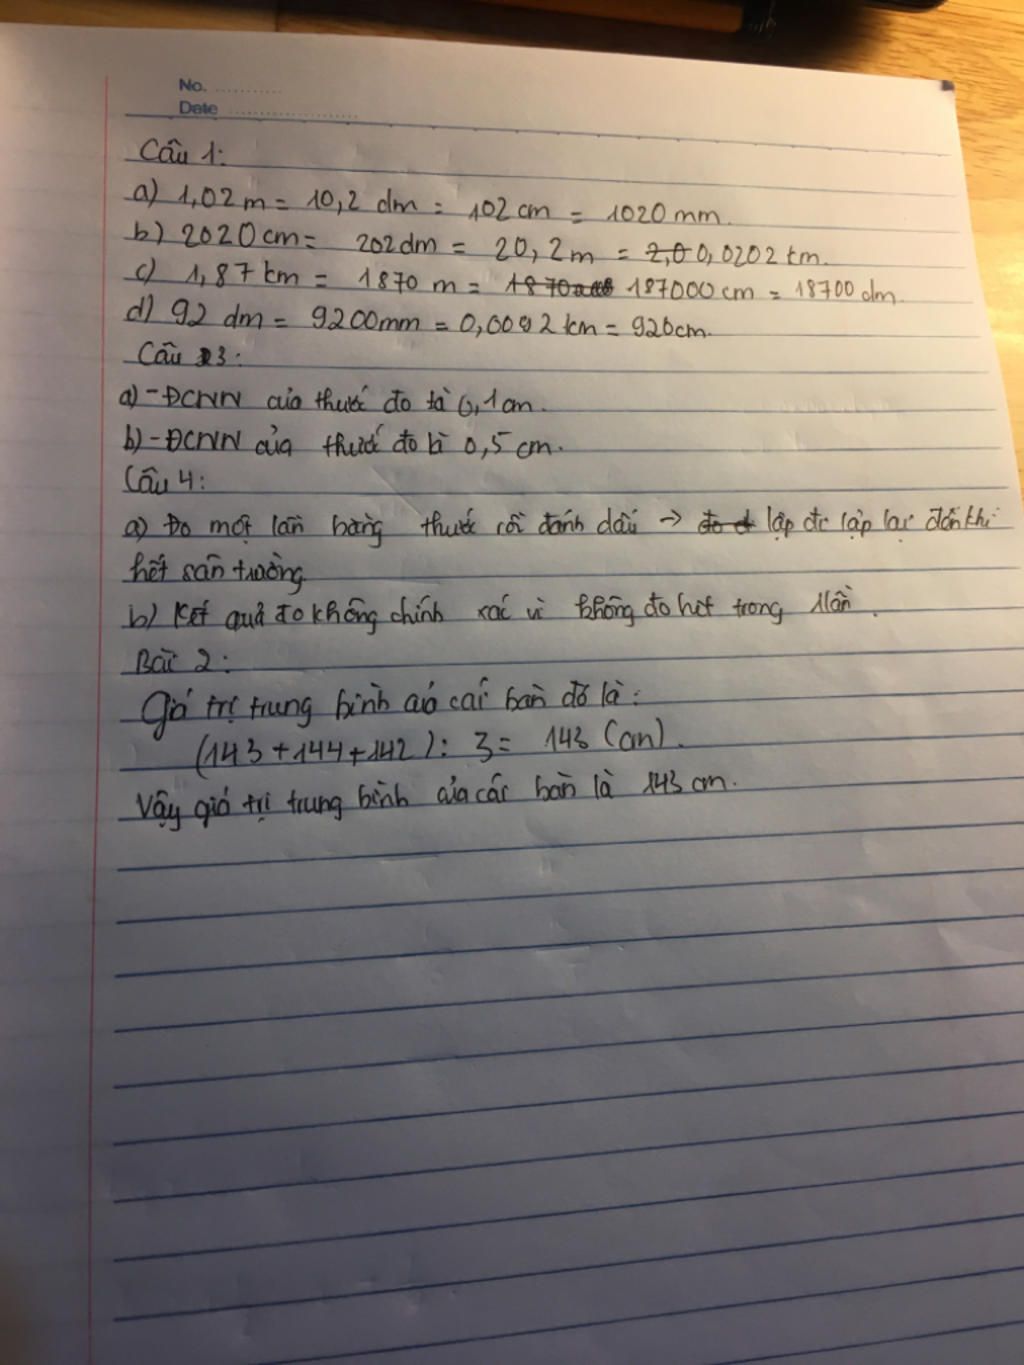 No. ...........
Date ....................
Câu 1:
a) 1,02 m = 10,2 dm = 102 cm = 1020 mm.
b) 2020 cm = 202 dm = 20,2 m = 2,0 0,0202 km.
c) 1,87 km = 1870 m = 1870 187000 cm = 18700 dm.
d) 92 dm = 9200mm = 0,0092 km = 920cm.
Câu 3:
a) - ĐCNN của thước đo là 0,1 cm.
b) - ĐCNN của thước đo là 0,5 cm.
Câu 4:
a) Đo một lần bằng thước rồi đánh dấu → đo lặp đi lặp lại đến khi
hết sân trường.
b) Kết quả đo không chính xác vì không đo hết trong 1 lần.
Bài 2:
Giá trị trung bình của các bạn đó là:
(143 + 144 + 142) : 3 = 143 (cm).
Vậy giá trị trung bình của các bạn là 143 cm.